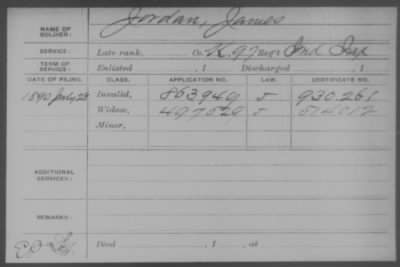 NAME OF SOLDIER: Jordan, James
SERVICE: Late rank, Co. K, 97 Reg't Ind Inf
TERM OF SERVICE: Enlisted , 1 Discharged , 1
DATE OF FILING. CLASS. APPLICATION NO. LAW. CERTIFICATE NO.
1890 July 28 Invalid, 863949 J 930.261
Widow, 497529 J 514012
Minor,
ADDITIONAL SERVICES:
REMARKS:
Died , 1 , at